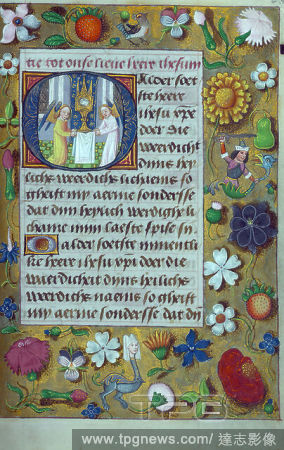 tot onse lieve heere ihesum
Alder soet
ste heere
ihesu
doer die
weerdicheit
dijns hey
lichs weerdichs lichaems so
gheeft my aerme sondersse
dat dijn heylich werdighe li
chame mijn laeste spise si
alder soetste minentlic
heere ihesu doer die
weerdicheit dijns heilichs
werdichs naems so gheeft
my aerme sondersse dat
TPG
www.tpgnews.com/ 達志影像